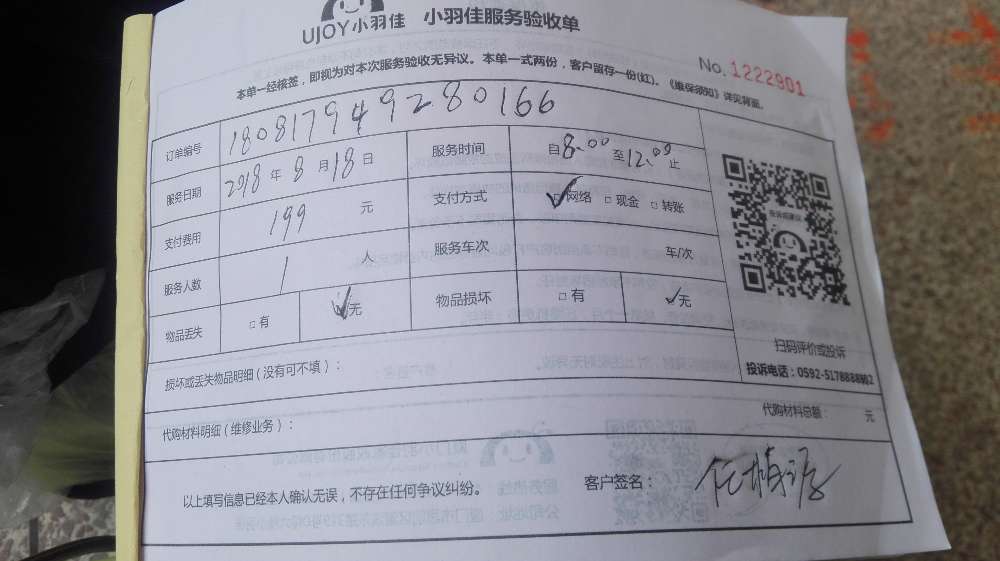 UJOY小羽佳 小羽佳服务验收单
本单一经核签，即视为对本次服务验收无异议。本单一式两份，客户留存一份(红)。《维保须知》详见背面。
No. 1222901
订单编号 180817949280166
服务日期 2018 年 8 月 18 日 服务时间 自 8:00 至 12:00 止
支付费用 199 元 支付方式 ☑网络 □现金 □转账
服务人数 1 人 服务车次 车/次
物品丢失 □有 ☑无 物品损坏 □有 ☑无
扫码评价或投诉
投诉电话：0592-5178888
损坏或丢失物品明细（没有可不填）：
代购材料明细（维修业务）： 代购材料总额： 元
以上填写信息已经本人确认无误，不存在任何争议纠纷。 客户签名：